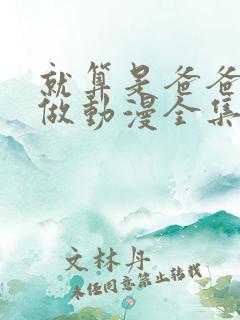 就算是爸爸
做動漫全集
文林丹
未经同意禁止转载